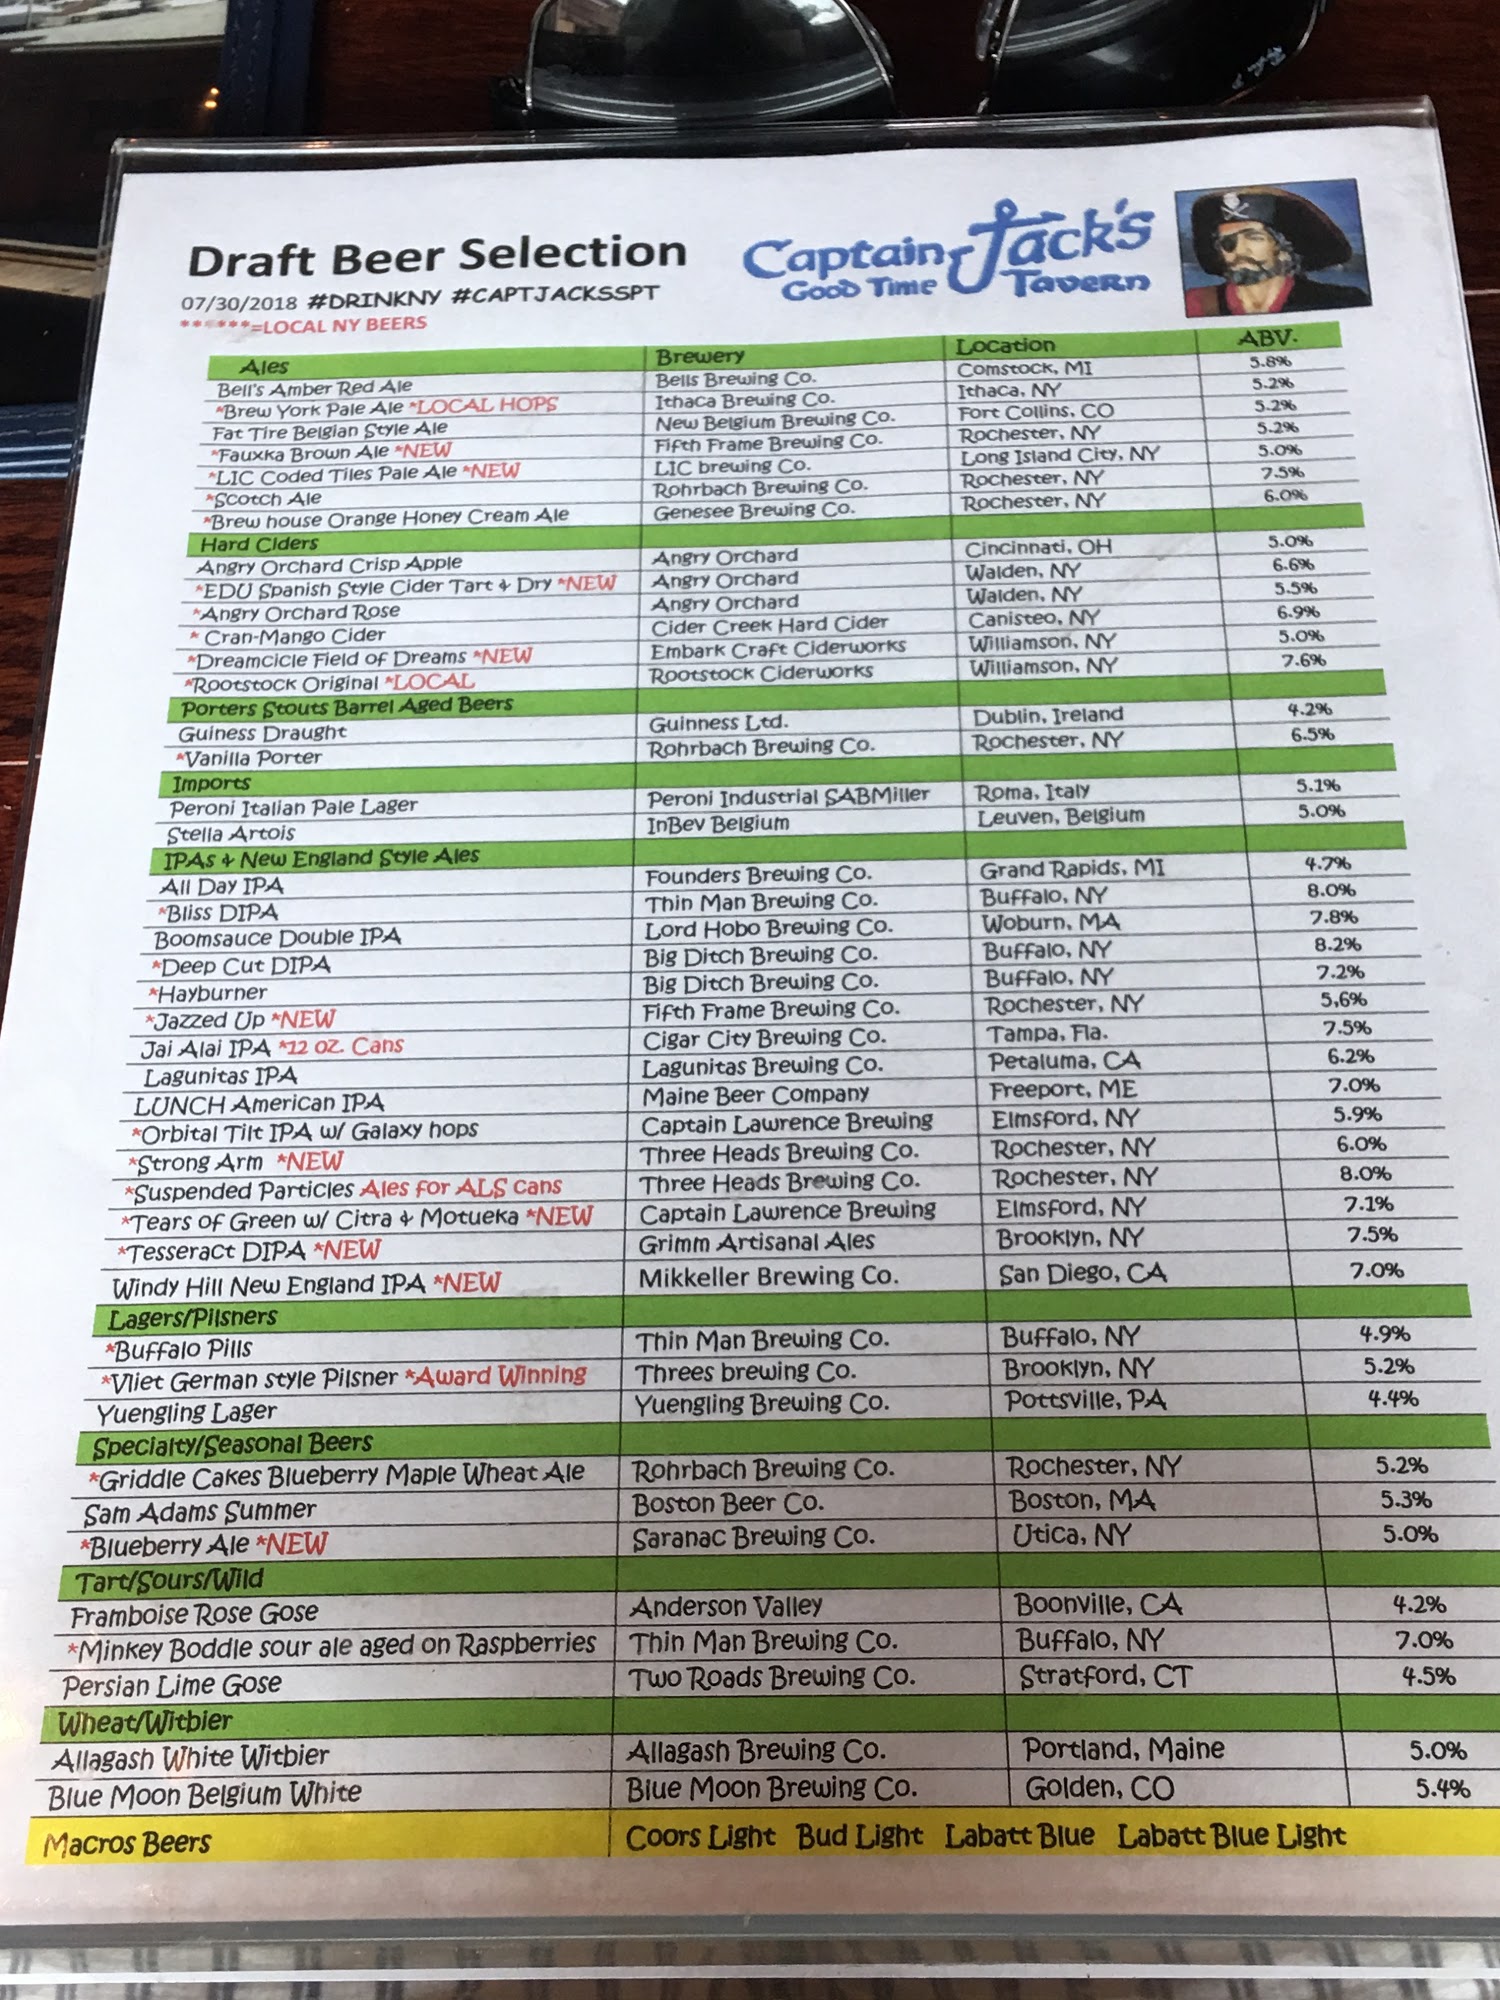 Draft Beer Selection
Captain Jack's
Good Time Tavern
07/30/2018 #DRINKNY #CAPTJACKSSPT
******=LOCAL NY BEERS
Ales Brewery Location ABV.
Bell's Amber Red Ale Bells Brewing Co. Comstock, MI 5.8%
*Brew York Pale Ale *LOCAL HOPS Ithaca Brewing Co. Ithaca, NY 5.2%
Fat Tire Belgian Style Ale New Belgium Brewing Co. Fort Collins, CO 5.2%
*Fauxka Brown Ale *NEW Fifth Frame Brewing Co. Rochester, NY 5.2%
*LIC Coded Tiles Pale Ale *NEW LIC brewing Co. Long Island City, NY 5.0%
*Scotch Ale Rohrbach Brewing Co. Rochester, NY 7.5%
*Brew house Orange Honey Cream Ale Genesee Brewing Co. Rochester, NY 6.0%
Hard Ciders
Angry Orchard Crisp Apple Angry Orchard Cincinnati, OH 5.0%
*EDU Spanish Style Cider Tart & Dry *NEW Angry Orchard Walden, NY 6.6%
*Angry Orchard Rose Angry Orchard Walden, NY 5.5%
* Cran-Mango Cider Cider Creek Hard Cider Canisteo, NY 6.9%
*Dreamcicle Field of Dreams *NEW Embark Craft Ciderworks Williamson, NY 5.0%
*Rootstock Original *LOCAL Rootstock Ciderworks Williamson, NY 7.6%
Porters Stouts Barrel Aged Beers
Guiness Draught Guinness Ltd. Dublin, Ireland 4.2%
*Vanilla Porter Rohrbach Brewing Co. Rochester, NY 6.5%
Imports
Peroni Italian Pale Lager Peroni Industrial SABMiller Roma, Italy 5.1%
Stella Artois InBev Belgium Leuven, Belgium 5.0%
IPAs & New England Style Ales
All Day IPA Founders Brewing Co. Grand Rapids, MI 4.7%
*Bliss DIPA Thin Man Brewing Co. Buffalo, NY 8.0%
Boomsauce Double IPA Lord Hobo Brewing Co. Woburn, MA 7.8%
*Deep Cut DIPA Big Ditch Brewing Co. Buffalo, NY 8.2%
*Hayburner Big Ditch Brewing Co. Buffalo, NY 7.2%
*Jazzed Up *NEW Fifth Frame Brewing Co. Rochester, NY 5,6%
Jai Alai IPA *12 oz. Cans Cigar City Brewing Co. Tampa, Fla. 7.5%
Lagunitas IPA Lagunitas Brewing Co. Petaluma, CA 6.2%
LUNCH American IPA Maine Beer Company Freeport, ME 7.0%
*Orbital Tilt IPA w/ Galaxy hops Captain Lawrence Brewing Elmsford, NY 5.9%
*Strong Arm *NEW Three Heads Brewing Co. Rochester, NY 6.0%
*Suspended Particles Ales for ALS cans Three Heads Brewing Co. Rochester, NY 8.0%
*Tears of Green w/ Citra & Motueka *NEW Captain Lawrence Brewing Elmsford, NY 7.1%
*Tesseract DIPA *NEW Grimm Artisanal Ales Brooklyn, NY 7.5%
Windy Hill New England IPA *NEW Mikkeller Brewing Co. San Diego, CA 7.0%
Lagers/Pilsners
*Buffalo Pills Thin Man Brewing Co. Buffalo, NY 4.9%
*Vliet German style Pilsner *Award Winning Threes brewing Co. Brooklyn, NY 5.2%
Yuengling Lager Yuengling Brewing Co. Pottsville, PA 4.4%
Specialty/Seasonal Beers
*Griddle Cakes Blueberry Maple Wheat Ale Rohrbach Brewing Co. Rochester, NY 5.2%
Sam Adams Summer Boston Beer Co. Boston, MA 5.3%
*Blueberry Ale *NEW Saranac Brewing Co. Utica, NY 5.0%
Tart/Sours/Wild
Framboise Rose Gose Anderson Valley Boonville, CA 4.2%
*Minkey Boddle sour ale aged on Raspberries Thin Man Brewing Co. Buffalo, NY 7.0%
Persian Lime Gose Two Roads Brewing Co. Stratford, CT 4.5%
Wheat/Witbier
Allagash White Witbier Allagash Brewing Co. Portland, Maine 5.0%
Blue Moon Belgium White Blue Moon Brewing Co. Golden, CO 5.4%
Macros Beers Coors Light Bud Light Labatt Blue Labatt Blue Light